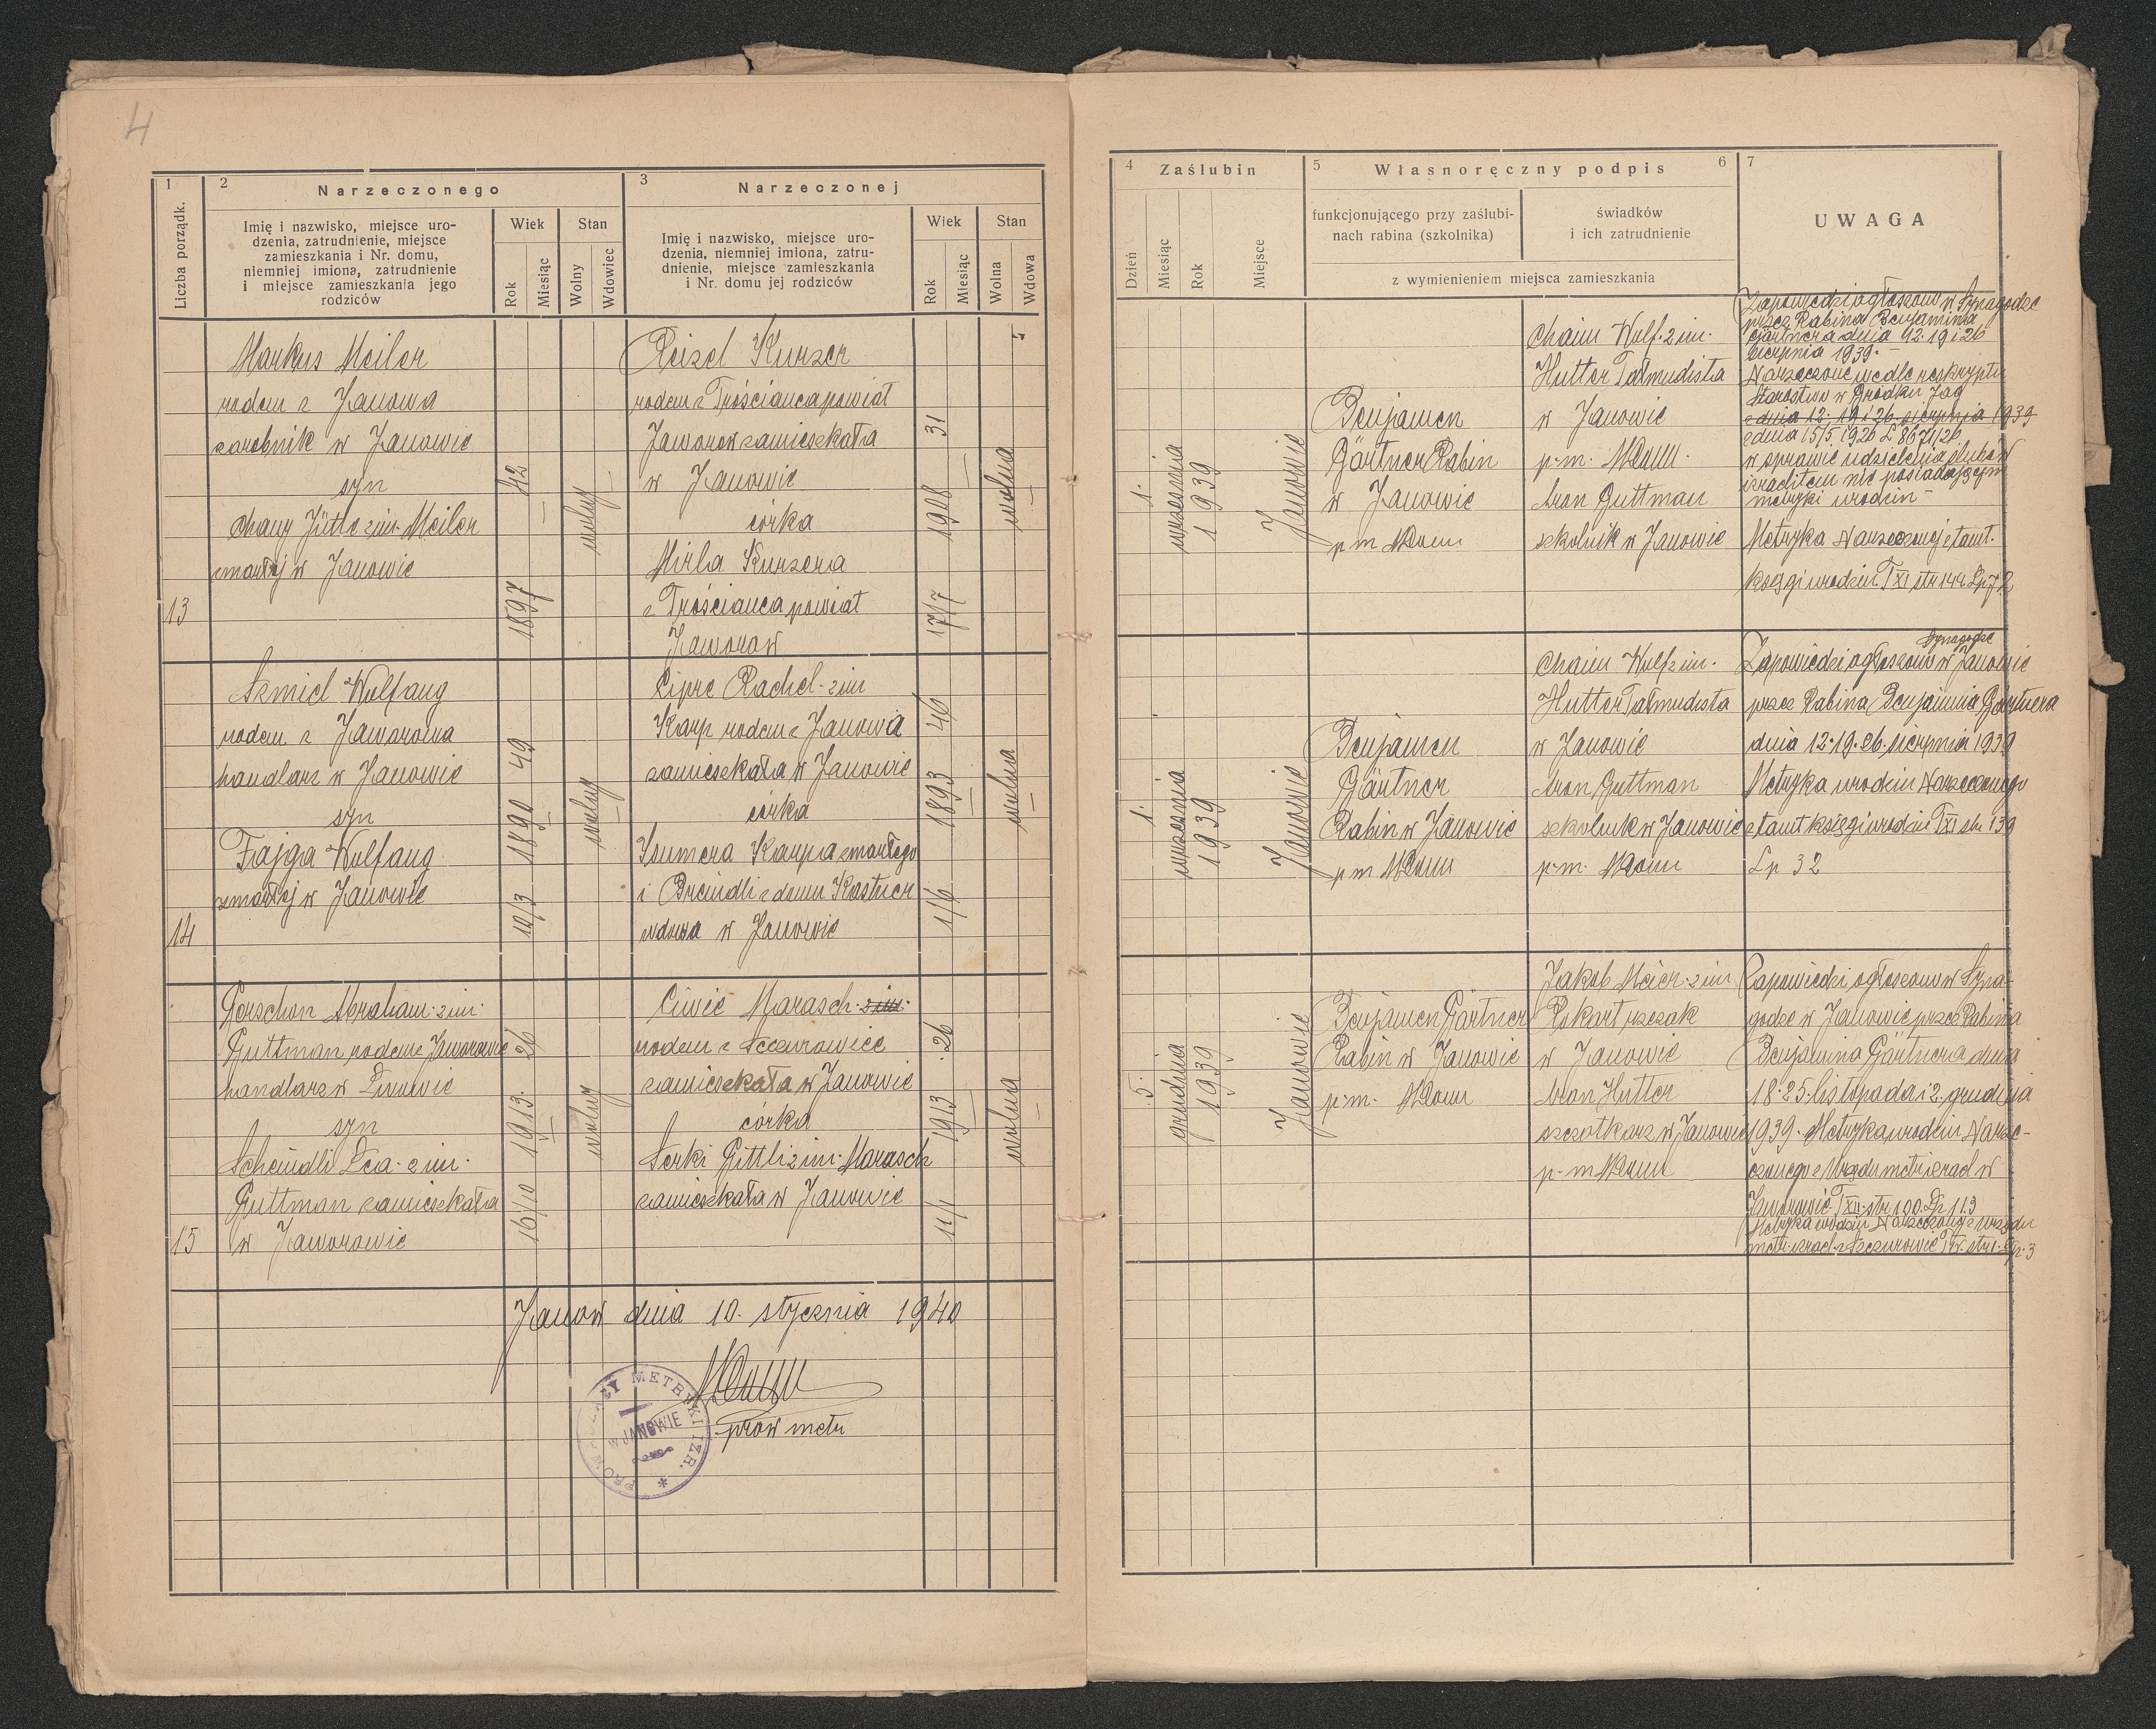 4
1
2
Narzeczonego
3
Narzeczonej
Liczba porządk.
Imię i nazwisko, miejsce uro-
dzenia, zatrudnienie, miejsce
zamieszkania i Nr. domu,
niemniej imiona, zatrudnienie
i miejsce zamieszkania jego
rodziców
Wiek
Rok
Miesiąc
Stan
Wolny
Wdowiec
Imię i nazwisko, miejsce uro-
dzenia, niemniej imiona, zatru-
dnienie, miejsce zamieszkania
i Nr. domu jej rodziców
Wiek
Rok
Miesiąc
Stan
Wolna
Wdowa
13
Markus Meiler
rodem z Janowa
zarobnik w Janowie
syn
Chany Jütte zim. Meiler
zmarłej w Janowie
42
1897
wolny
Reizel Kurzer
rodem z Trościanca powiat
Jaworow zamieszkała
w Janowie
córka
Mirla Kurzera
z Trościanca powiat
Jaworow
31
1908
17/7
wolna
14
Szmiel Wolfang
rodem z Jaworowa
handlarz w Janowie
syn
Fajga Wolfang
zmarłej w Janowie
49
1890
12/3
wolny
Cipre Rachel zim
Karp rodem z Janowa
zamieszkała w Janowie
córka
Isumera Karpa zmarłego
i Breindli z domu Kastner
wdowa w Janowie
46
1893
1/6
wolna
15
Gerschon Abraham zim.
Guttman rodem z Jaworowie
handlarz w Lwowie
syn
Scheindli Lea zim.
Guttman zamieszkała
w Jaworowie
26
1913
16/10
wolny
Ciwie Marasch zim.
rodem z Szczurowice
zamieszkała w Janowie
córka
Serki Gittli zim. Marasch
zamieszkała w Janowie
26
1913
11/1
wolna
Janow dnia 10. stycznia 1940
prow metr
PROWADZĄCY METRYKI IZR.
W JANOWIE
4
Zaślubin
5
Własnoręczny podpis
6
7
Dzień
Miesiąc
Rok
Miejsce
funkcjonującego przy zaślubi-
nach rabina (szkolnika)
świadków
i ich zatrudnienie
z wymienieniem miejsca zamieszkania
UWAGA
1.
września
1939
Janowie
Benjamen
Gärtner Rabin
w Janowie
p m
Chaim Wolf. zim.
Hutter Talmudista
w Janowie
p. m.
Aron Guttman
szkolnik w Janowie
Zapowiedzi ogłoszono w Synagodze
przez Rabina Benjamina
Gärtnera dnia 12. 19 i 26
sierpnia 1939.
Narzeczone wedle reskryptu
Starostwo w Gródku Jag
z dnia 12, 19 i 26 sierpnia 1939
z dnia 15/5 1926 L 8671/26
w sprawie udzielenia ślubów
izraelitom nie posiadającym
metryki urodzin
Metryka Narzeczonej z tamt.
księgi urodzin T XI str 144 Lp 72
1.
września
1939
Janowie
Benjamen
Gärtner
Rabin w Janowie
p m
Chaim Wolf zim.
Hutter Talmudista
w Janowie
Aron Guttman
szkolnik w Janowie
p. m.
Synagodze
Zapowiedzi ogłoszono w Janowie
przez Rabina Benjamina Gärtnera
dnia 12. 19. 26. sierpnia 1939
Metryka urodzin Narzeczonego
z tamt księgi urodzin T XI str 139
Lp 32
5.
grudnia
1939
Janowie
Benjamen Gärtner
Rabin w Janowie
p. m.
Jakob Meier zim
Rokart rzezak
w Janowie
Aron Hutter
szczotkarz w Janowie
p. m
Zapowiedzi ogłoszono w Syna-
godze w Janowie przez Rabina
Benjamina Gärtnera dnia
18. 25. listopada i 2. grudnia
1939. Metryka urodzin Narze-
czonego z Urzędu metr izrael w
Jaworowie T XII str 100 Lp 113
Metryka urodzin Narzeczonej z urzędu
metr. izrael. z Szczurowic T IV. str 1. Lp. 3